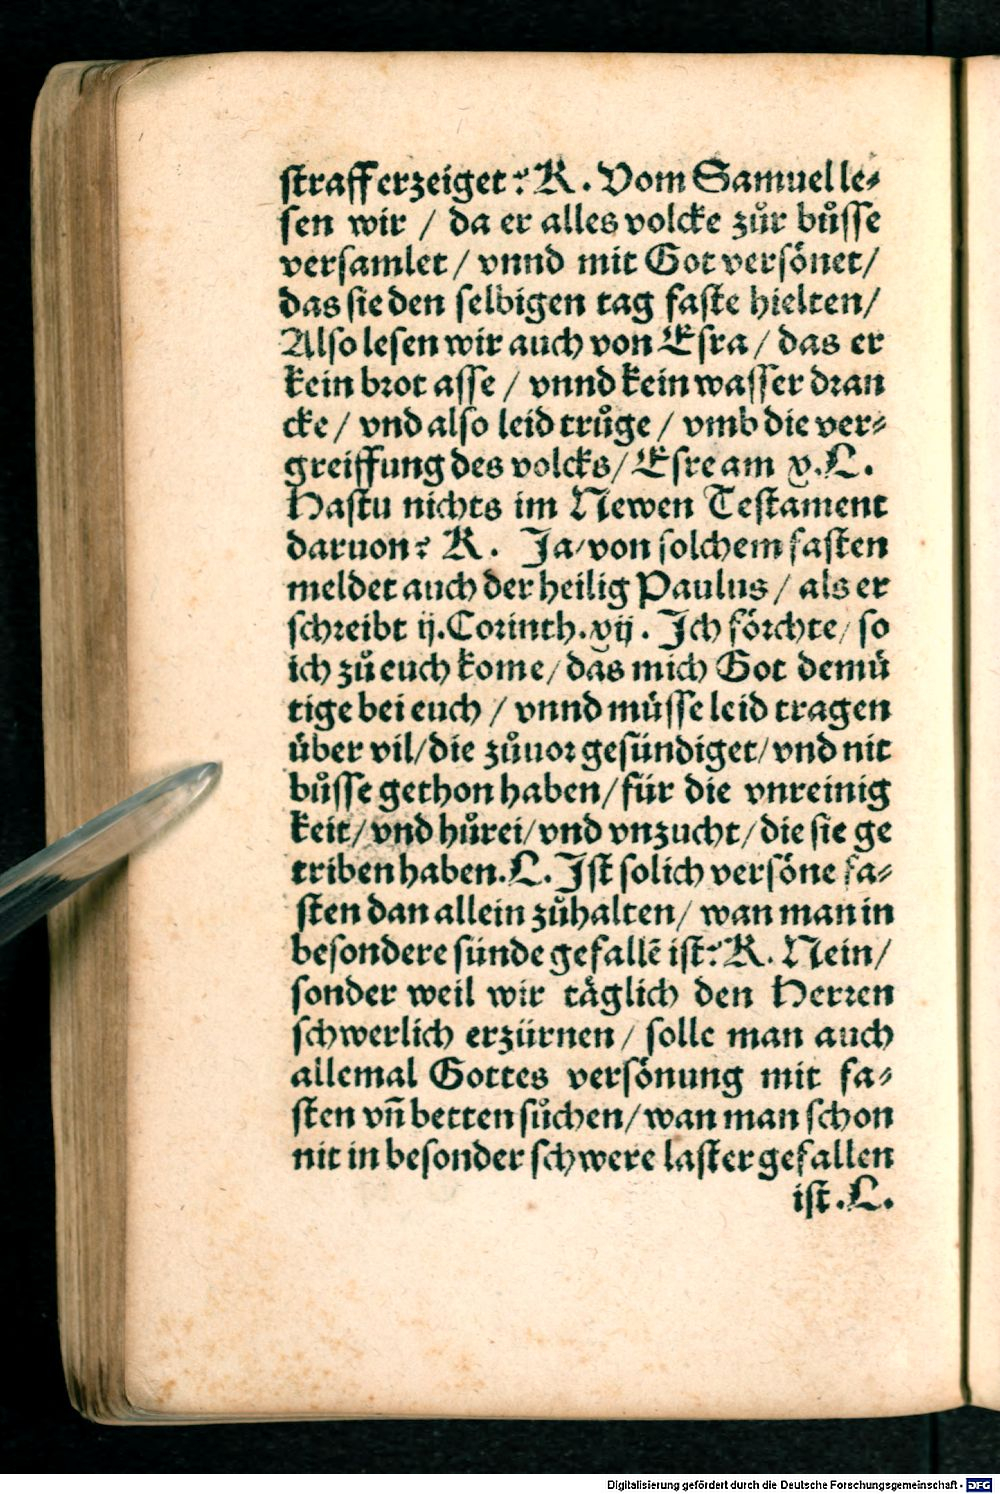 straff erzeiget? K. Vom Samuel le⸗
sen wir / da er alles volcke zůr bůsse
versamlet / vnnd mit Got versönet /
das sie den selbigen tag faste hielten /
Also lesen wir auch von Esra / das er
kein brot asse / vnnd kein wasser dran
cke / vnd also leid trůge / vmb die ver⸗
greiffung des volcks / Esre am x. L.
Hastu nichts im Newen Testament
daruon? K. Ja / von solchem fasten
meldet auch der heilig Paulus / als er
schreibt ij. Corinth. xij. Ich förchte / so
ich zů euch kome / das mich Got demü
tige bei euch / vnnd müsse leid tragen
über vil / die zůuor gesündiget / vnd nit
bůsse gethon haben / für die vnreinig
keit / vnd hůrei / vnd vnzucht / die sie ge
triben haben. L. Ist solich versöne fa⸗
sten dan allein zůhalten / wan man in
besondere sünde gefallē ist? K. Nein /
sonder weil wir täglich den Herren
schwerlich erzürnen / solle man auch
allemal Gottes versönung mit fa⸗
sten vn̄ betten sůchen / wan man schon
nit in besonder schwere laster gefallen
ist. L.
Digitalisierung gefördert durch die Deutsche Forschungsgemeinschaft - DFG